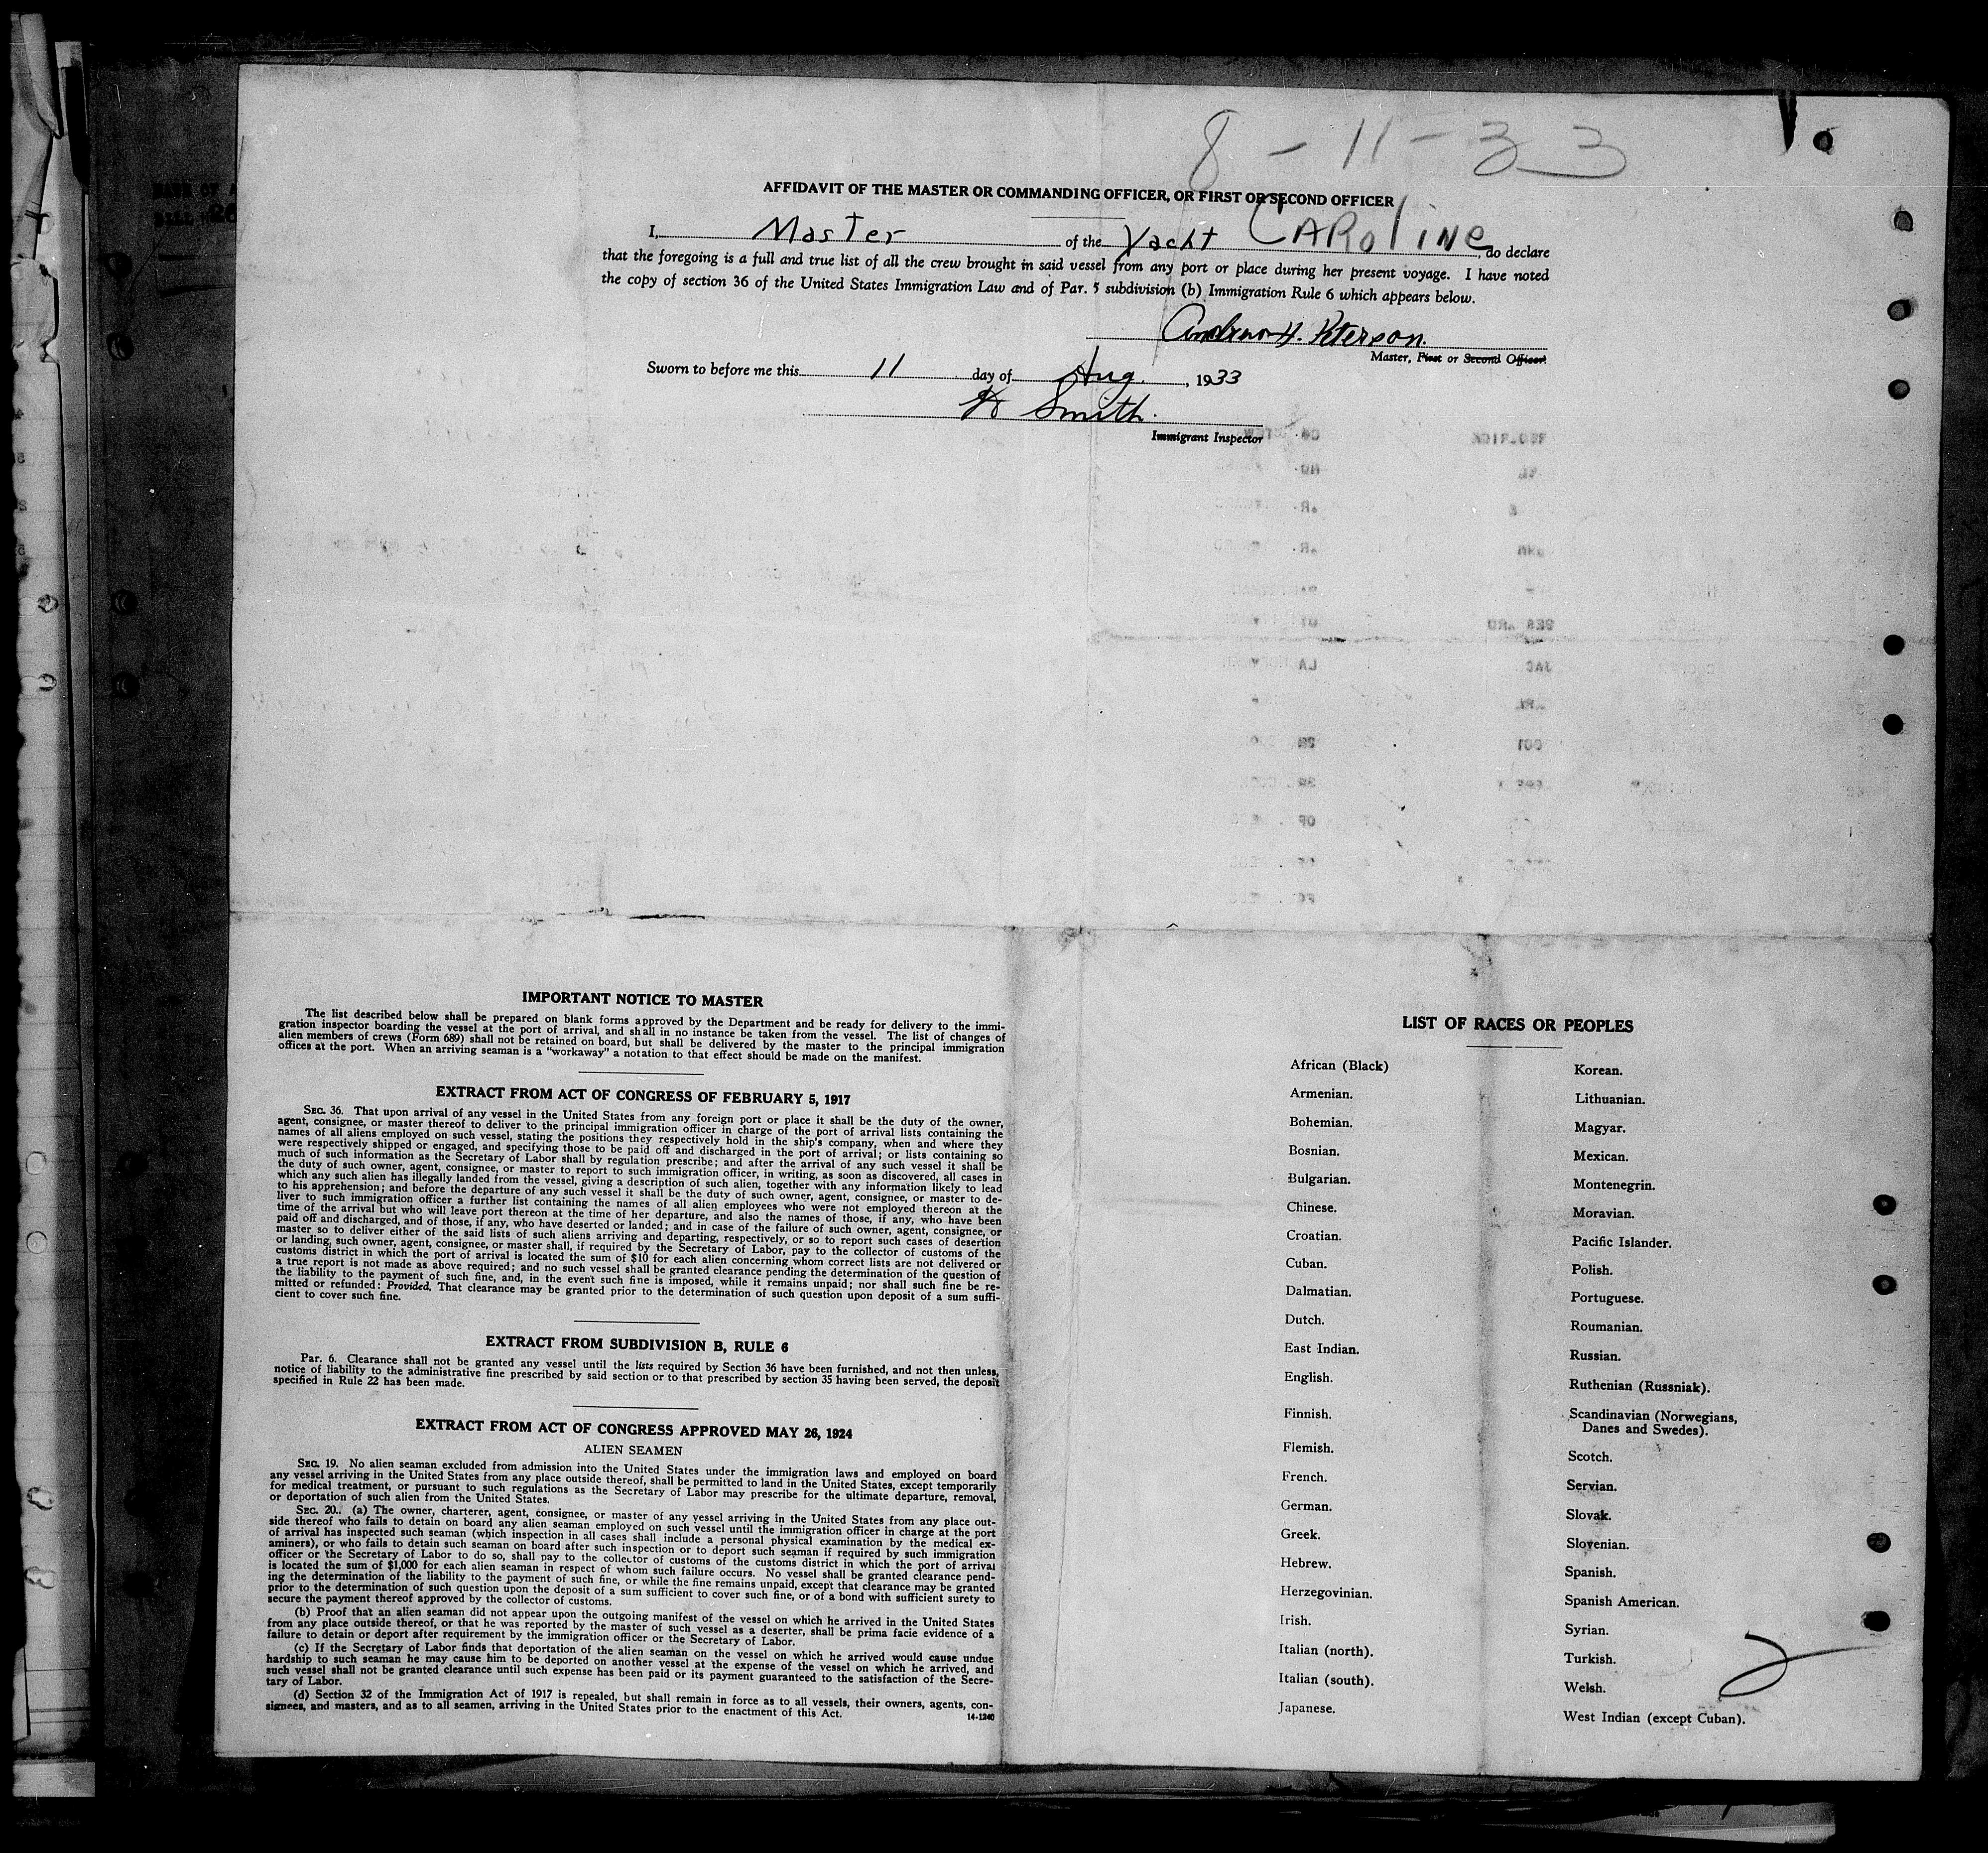 8-11-33
AFFIDAVIT OF THE MASTER OR COMMANDING OFFICER, OR FIRST OR SECOND OFFICER
I, Master of the Yacht CAROLINE, do declare
that the foregoing is a full and true list of all the crew brought in said vessel from any port or place during her present voyage. I have noted
the copy of section 36 of the United States Immigration Law and of Par. 5 subdivision (b) Immigration Rule 6 which appears below.
Andrew H. Peterson.
Master, First or Second Officer.
Sworn to before me this 11 day of Aug., 1933
Smith.
Immigrant Inspector
IMPORTANT NOTICE TO MASTER
The list described below shall be prepared on blank forms approved by the Department and be ready for delivery to the immi-
gration inspector boarding the vessel at the port of arrival, and shall in no instance be taken from the vessel. The list of changes of
alien members of crews (Form 689) shall not be retained on board, but shall be delivered by the master to the principal immigration
offices at the port. When an arriving seaman is a "workaway" a notation to that effect should be made on the manifest.
EXTRACT FROM ACT OF CONGRESS OF FEBRUARY 5, 1917
SEC. 36. That upon arrival of any vessel in the United States from any foreign port or place it shall be the duty of the owner,
agent, consignee, or master thereof to deliver to the principal immigration officer in charge of the port of arrival lists containing the
names of all aliens employed on such vessel, stating the positions they respectively hold in the ship's company, when and where they
were respectively shipped or engaged, and specifying those to be paid off and discharged in the port of arrival; or lists containing so
much of such information as the Secretary of Labor shall by regulation prescribe; and after the arrival of any such vessel it shall be
the duty of such owner, agent, consignee, or master to report to such immigration officer, in writing, as soon as discovered, all cases in
which any such alien has illegally landed from the vessel, giving a description of such alien, together with any information likely to lead
to his apprehension; and before the departure of any such vessel it shall be the duty of such owner, agent, consignee, or master to de-
liver to such immigration officer a further list containing the names of all alien employees who were not employed thereon at the
time of the arrival but who will leave port thereon at the time of her departure, and also the names of those, if any, who have been
paid off and discharged, and of those, if any, who have deserted or landed; and in case of the failure of such owner, agent, consignee, or
master so to deliver either of the said lists of such aliens arriving and departing, respectively, or so to report such cases of desertion
or landing, such owner, agent, consignee, or master shall, if required by the Secretary of Labor, pay to the collector of customs of the
customs district in which the port of arrival is located the sum of $10 for each alien concerning whom correct lists are not delivered or
a true report is not made as above required; and no such vessel shall be granted clearance pending the determination of the question of
the liability to the payment of such fine, and, in the event such fine is imposed, while it remains unpaid; nor shall such fine be re-
mitted or refunded: Provided, That clearance may be granted prior to the determination of such question upon deposit of a sum suffi-
cient to cover such fine.
EXTRACT FROM SUBDIVISION B, RULE 6
Par. 6. Clearance shall not be granted any vessel until the lists required by Section 36 have been furnished, and not then unless,
notice of liability to the administrative fine prescribed by said section or to that prescribed by section 35 having been served, the deposit
specified in Rule 22 has been made.
EXTRACT FROM ACT OF CONGRESS APPROVED MAY 26, 1924
ALIEN SEAMEN
SEC. 19. No alien seaman excluded from admission into the United States under the immigration laws and employed on board
any vessel arriving in the United States from any place outside thereof, shall be permitted to land in the United States, except temporarily
for medical treatment, or pursuant to such regulations as the Secretary of Labor may prescribe for the ultimate departure, removal,
or deportation of such alien from the United States.
SEC. 20. (a) The owner, charterer, agent, consignee, or master of any vessel arriving in the United States from any place out-
side thereof who fails to detain on board any alien seaman employed on such vessel until the immigration officer in charge at the port
of arrival has inspected such seaman (which inspection in all cases shall include a personal physical examination by the medical ex-
aminers), or who fails to detain such seaman on board after such inspection or to deport such seaman if required by such immigration
officer or the Secretary of Labor to do so, shall pay to the collector of customs of the customs district in which the port of arrival
is located the sum of $1,000 for each alien seaman in respect of whom such failure occurs. No vessel shall be granted clearance pend-
ing the determination of the liability to the payment of such fine, or while the fine remains unpaid, except that clearance may be granted
prior to the determination of such question upon the deposit of a sum sufficient to cover such fine, or of a bond with sufficient surety to
secure the payment thereof approved by the collector of customs.
(b) Proof that an alien seaman did not appear upon the outgoing manifest of the vessel on which he arrived in the United States
from any place outside thereof, or that he was reported by the master of such vessel as a deserter, shall be prima facie evidence of a
failure to detain or deport after requirement by the immigration officer or the Secretary of Labor.
(c) If the Secretary of Labor finds that deportation of the alien seaman on the vessel on which he arrived would cause undue
hardship to such seaman he may cause him to be deported on another vessel at the expense of the vessel on which he arrived, and
such vessel shall not be granted clearance until such expense has been paid or its payment guaranteed to the satisfaction of the Secre-
tary of Labor.
(d) Section 32 of the Immigration Act of 1917 is repealed, but shall remain in force as to all vessels, their owners, agents, con-
signees, and masters, and as to all seamen, arriving in the United States prior to the enactment of this Act.
14-1240
LIST OF RACES OR PEOPLES
African (Black)
Armenian.
Bohemian.
Bosnian.
Bulgarian.
Chinese.
Croatian.
Cuban.
Dalmatian.
Dutch.
East Indian.
English.
Finnish.
Flemish.
French.
German.
Greek.
Hebrew.
Herzegovinian.
Irish.
Italian (north).
Italian (south).
Japanese.
Korean.
Lithuanian.
Magyar.
Mexican.
Montenegrin.
Moravian.
Pacific Islander.
Polish.
Portuguese.
Roumanian.
Russian.
Ruthenian (Russniak).
Scandinavian (Norwegians,
Danes and Swedes).
Scotch.
Servian.
Slovak.
Slovenian.
Spanish.
Spanish American.
Syrian.
Turkish.
Welsh.
West Indian (except Cuban).
2